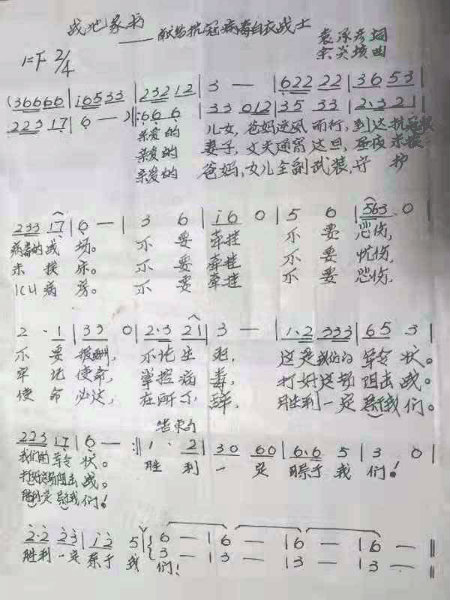 战地家书
——献给抗冠病毒白衣战士
词
余炎 曲
1=F 2/4
(36666|16533|23212|3 —|62222|3653|
22317|6 —):‖:666|33 012|35 33|2·321|
亲爱的 儿女,爸妈逆风而行,到达抗冠
亲爱的 妻子,丈夫
亲爱的 爸妈,女儿全副武装,守 护
233 17|6 —|3 6|i6 0|5 6|563 0|
病毒的战 场。不 要 牵挂 不 要 悲伤,
不 要 牵挂 不 要 忧伤,
ICU病 房。不 要 牵挂 不 要 悲伤,
2 ·1|33 0|2·3 21|3 —|1·2 333|65 3|
不 要 不论生 死, 这是我们的 军令 状。
牢 记 使命, 掌控病 毒, 打好这场 阻击 战。
使 命 必达, 在所不 辞, 胜利一定 属于我们。
结束句
223 17|6 —:‖1· 2|30 60|6·6 5|3 0|
我们的军令 状。 胜 利 一 定 属于 我 们!
打好这场阻击 战。
胜利一定 属于我们!
2·2 23|12 5|6 —|6 —|6 —|6 —‖
3 —|3 —|3 —|3 —‖
胜利 一定 属于 我 们!